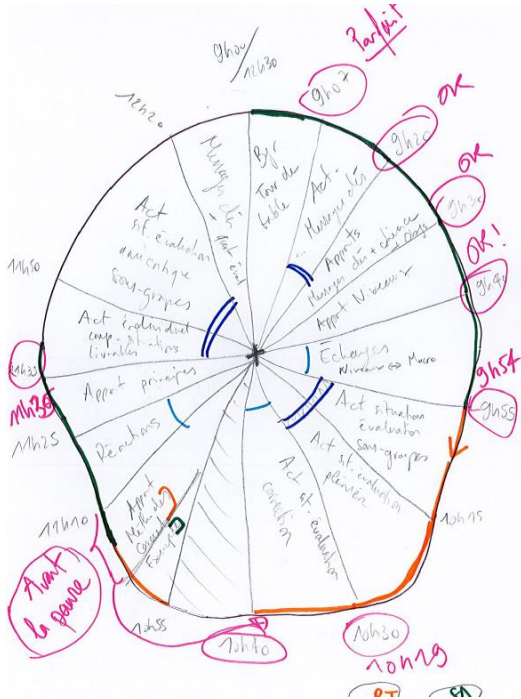 9h00
/
12h30
Parfait
9h07
OK
9h20
OK
9h30
OK!
9h40
9h54
9h55
10h15
10h30
10h19
10h40
10h55
Avant
la pause
11h10
11h25
11h36
11h35
11h50
12h20
Bjr
Tour de
table
Act.
Messages clés
Apports
Messages clés +
Apport Niveaux
Échanges
Niveaux ↔ Macro
Act situation
évaluation
sous-groupes
Act sit. évaluation
plénière
Act sit. évaluation
correction
Apport
Méthodes
Réactions
Apport principes
Act individuel
comp. situations
livrables
Act
sit. évaluation
sous-groupes
Messages clés